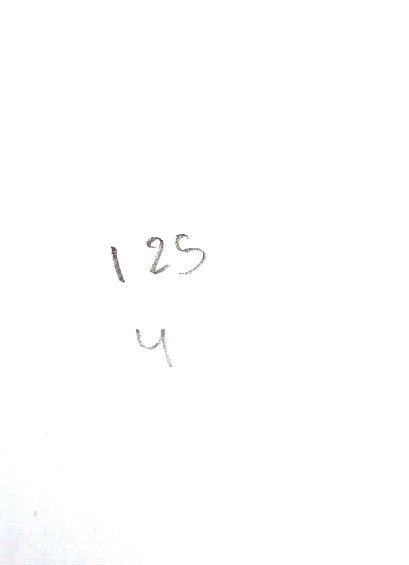 125
4